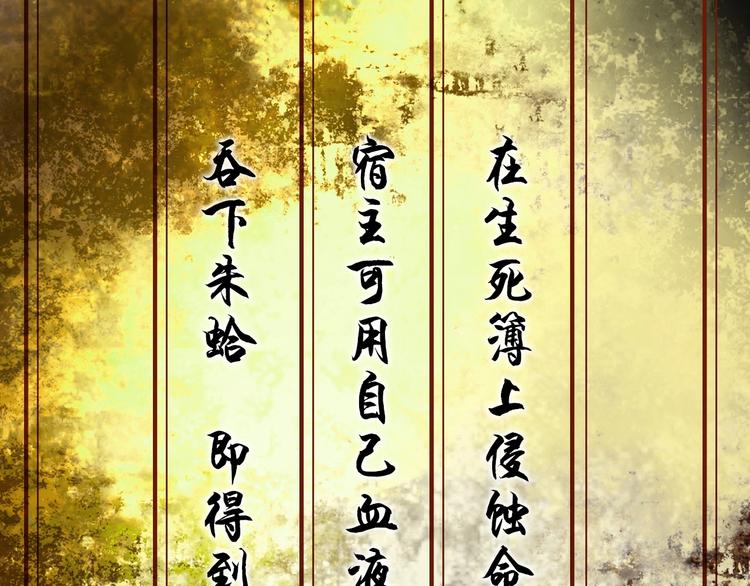 在生死簿上侵蚀命
宿主可用自己血液
吞下朱蛤 即得到